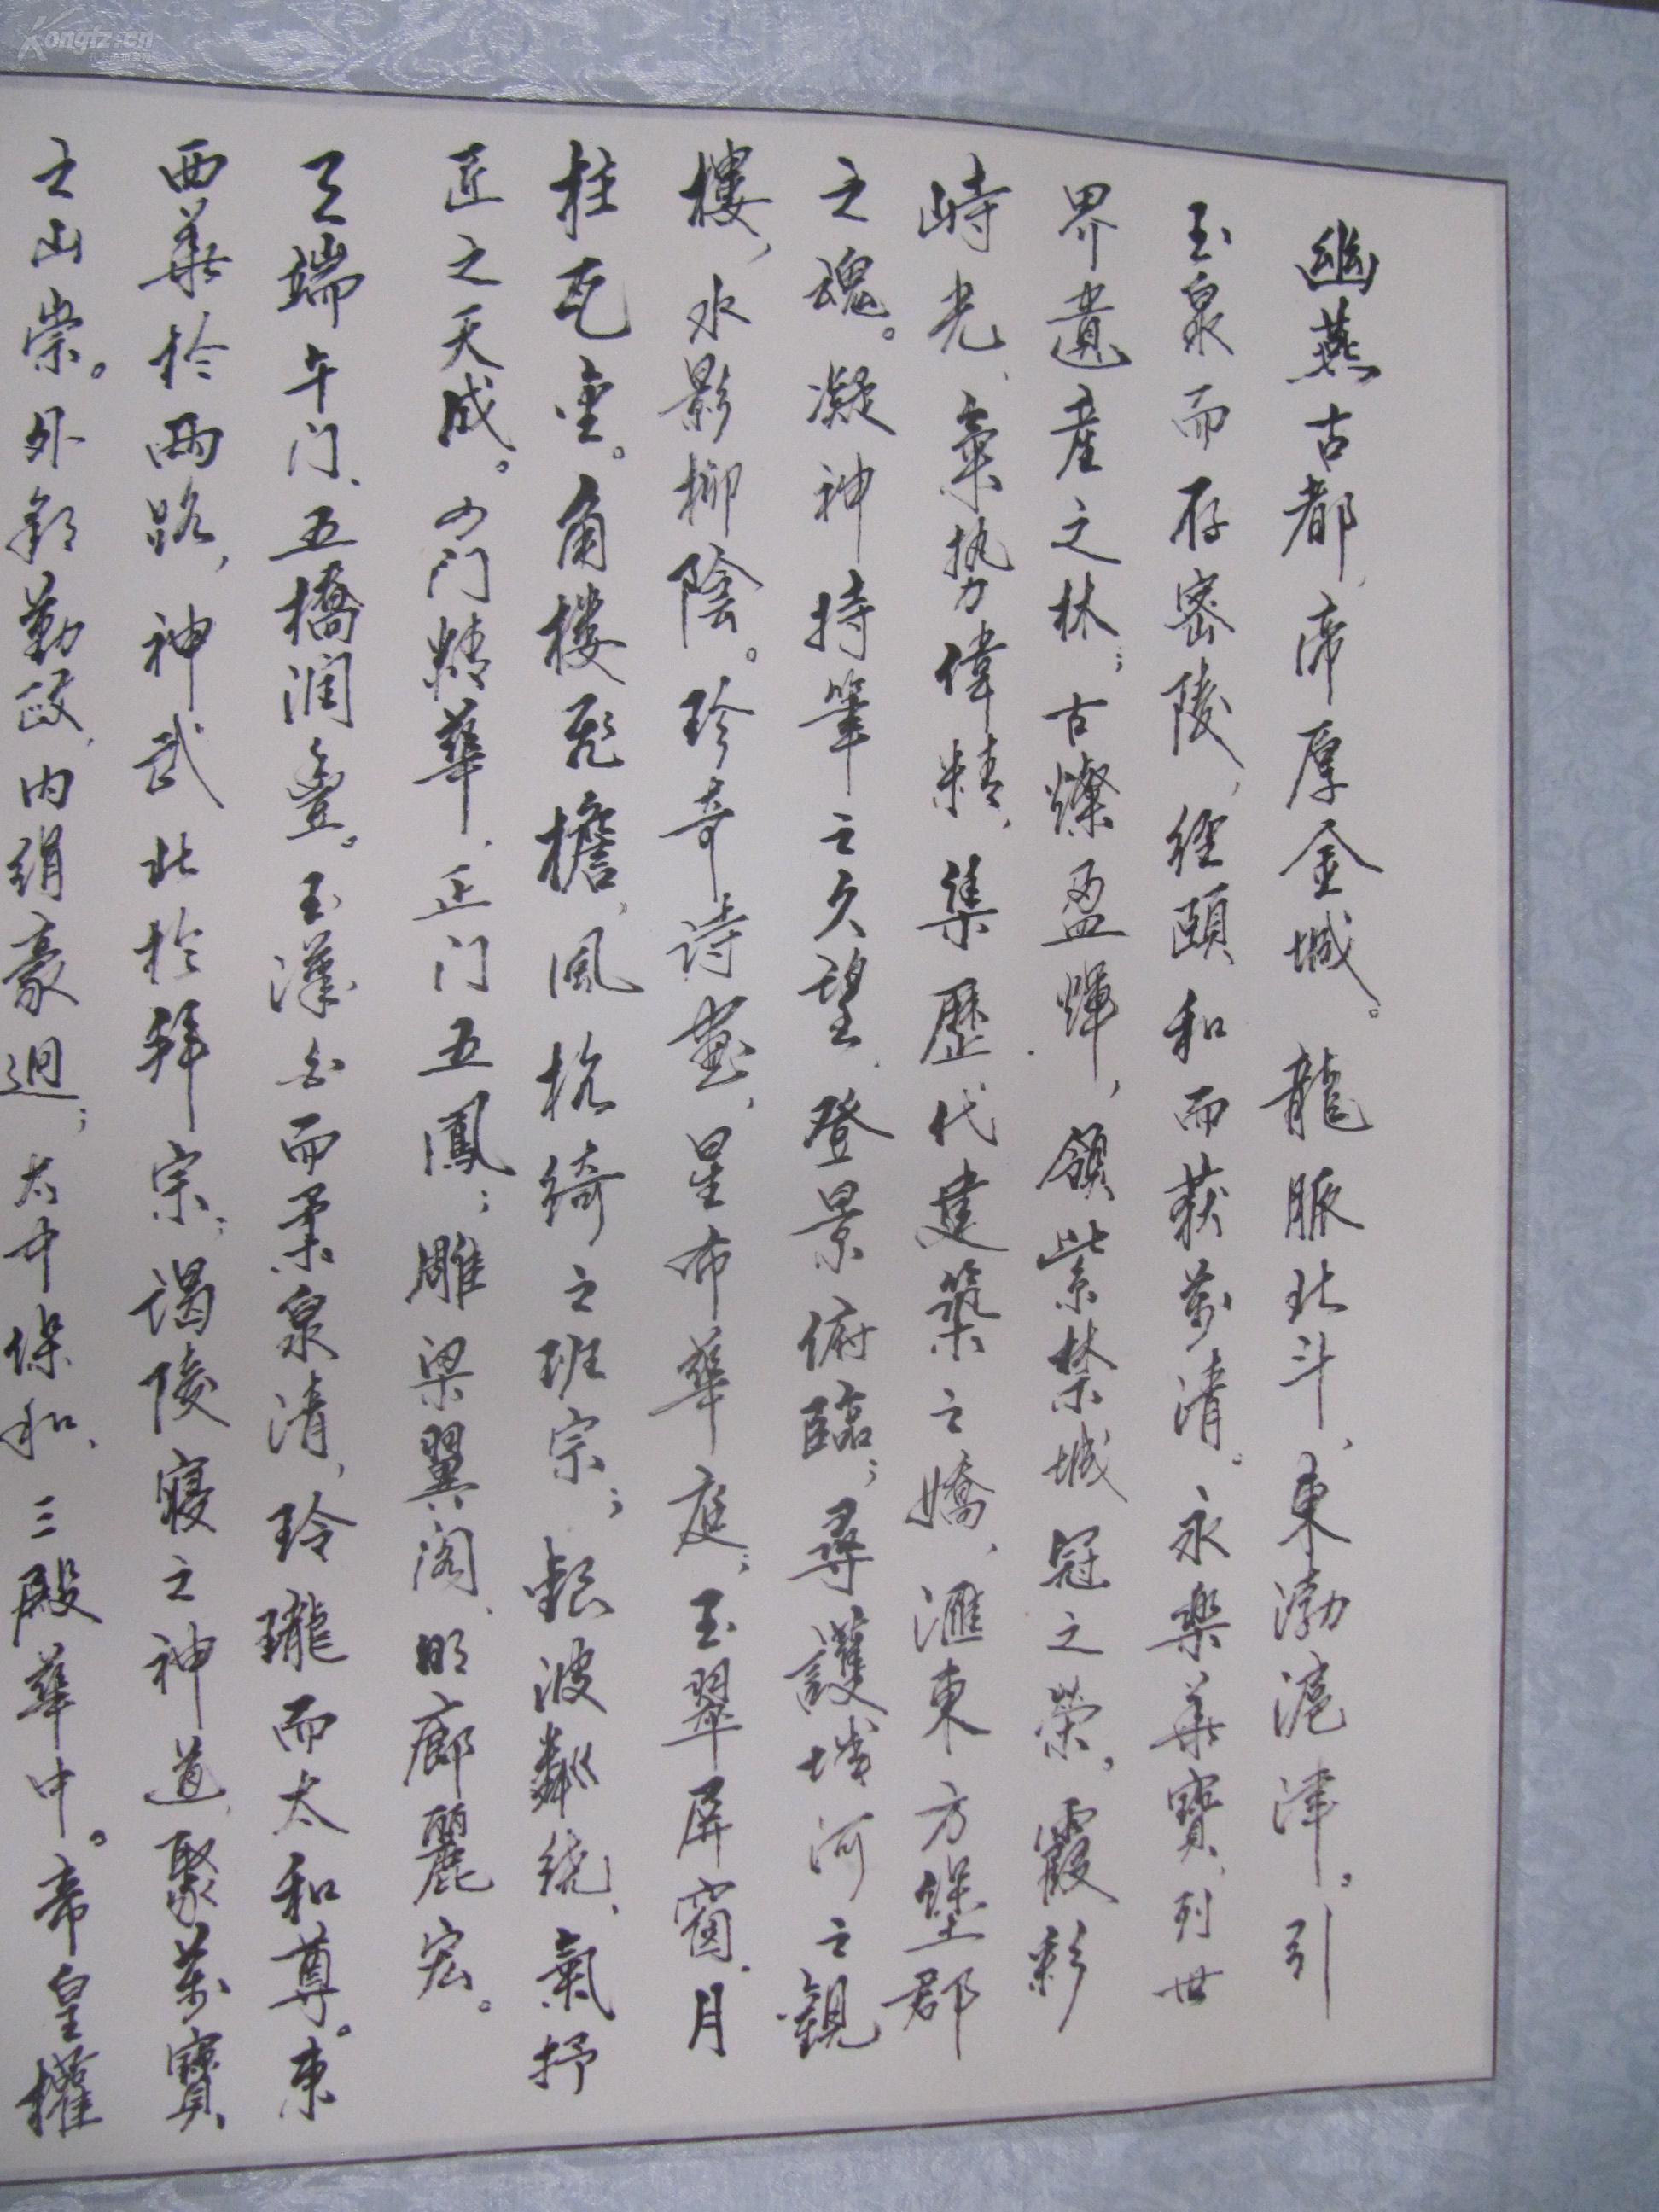 幽燕古都,帝厚金城。龍脈北斗,東渤滬津。引
玉泉而存密陵,經頤和而获萬清。永樂華寶,列世
界遺産之林;古燦盈輝,領紫禁城冠之榮。霞彩
時光,氣势偉精,集歷代建築之嬌,滙東方堡郡
之魂。凝神持筆之久望,登景俯臨;尋護城河之觀
樓,水影柳陰。珍奇诗畫,星布華庭;玉翠屏窗,月
柱瓦金。角楼飛檐,風梳綺之班宗;銀波粼绕,氣抒
匠之天成。四门精華,正门五鳳;雕梁翼阁,明廊麗宏。
天端午门,五橋润豐。玉漢白而柔泉清,玲瓏而太和尊。東
西華於兩路,神武北於拜宗;谒陵寝之神道,聚萬寶
之山崇。外朝勤政,内绢豪迴;太中保和,三殿華中。帝皇權
Kongfz.cn